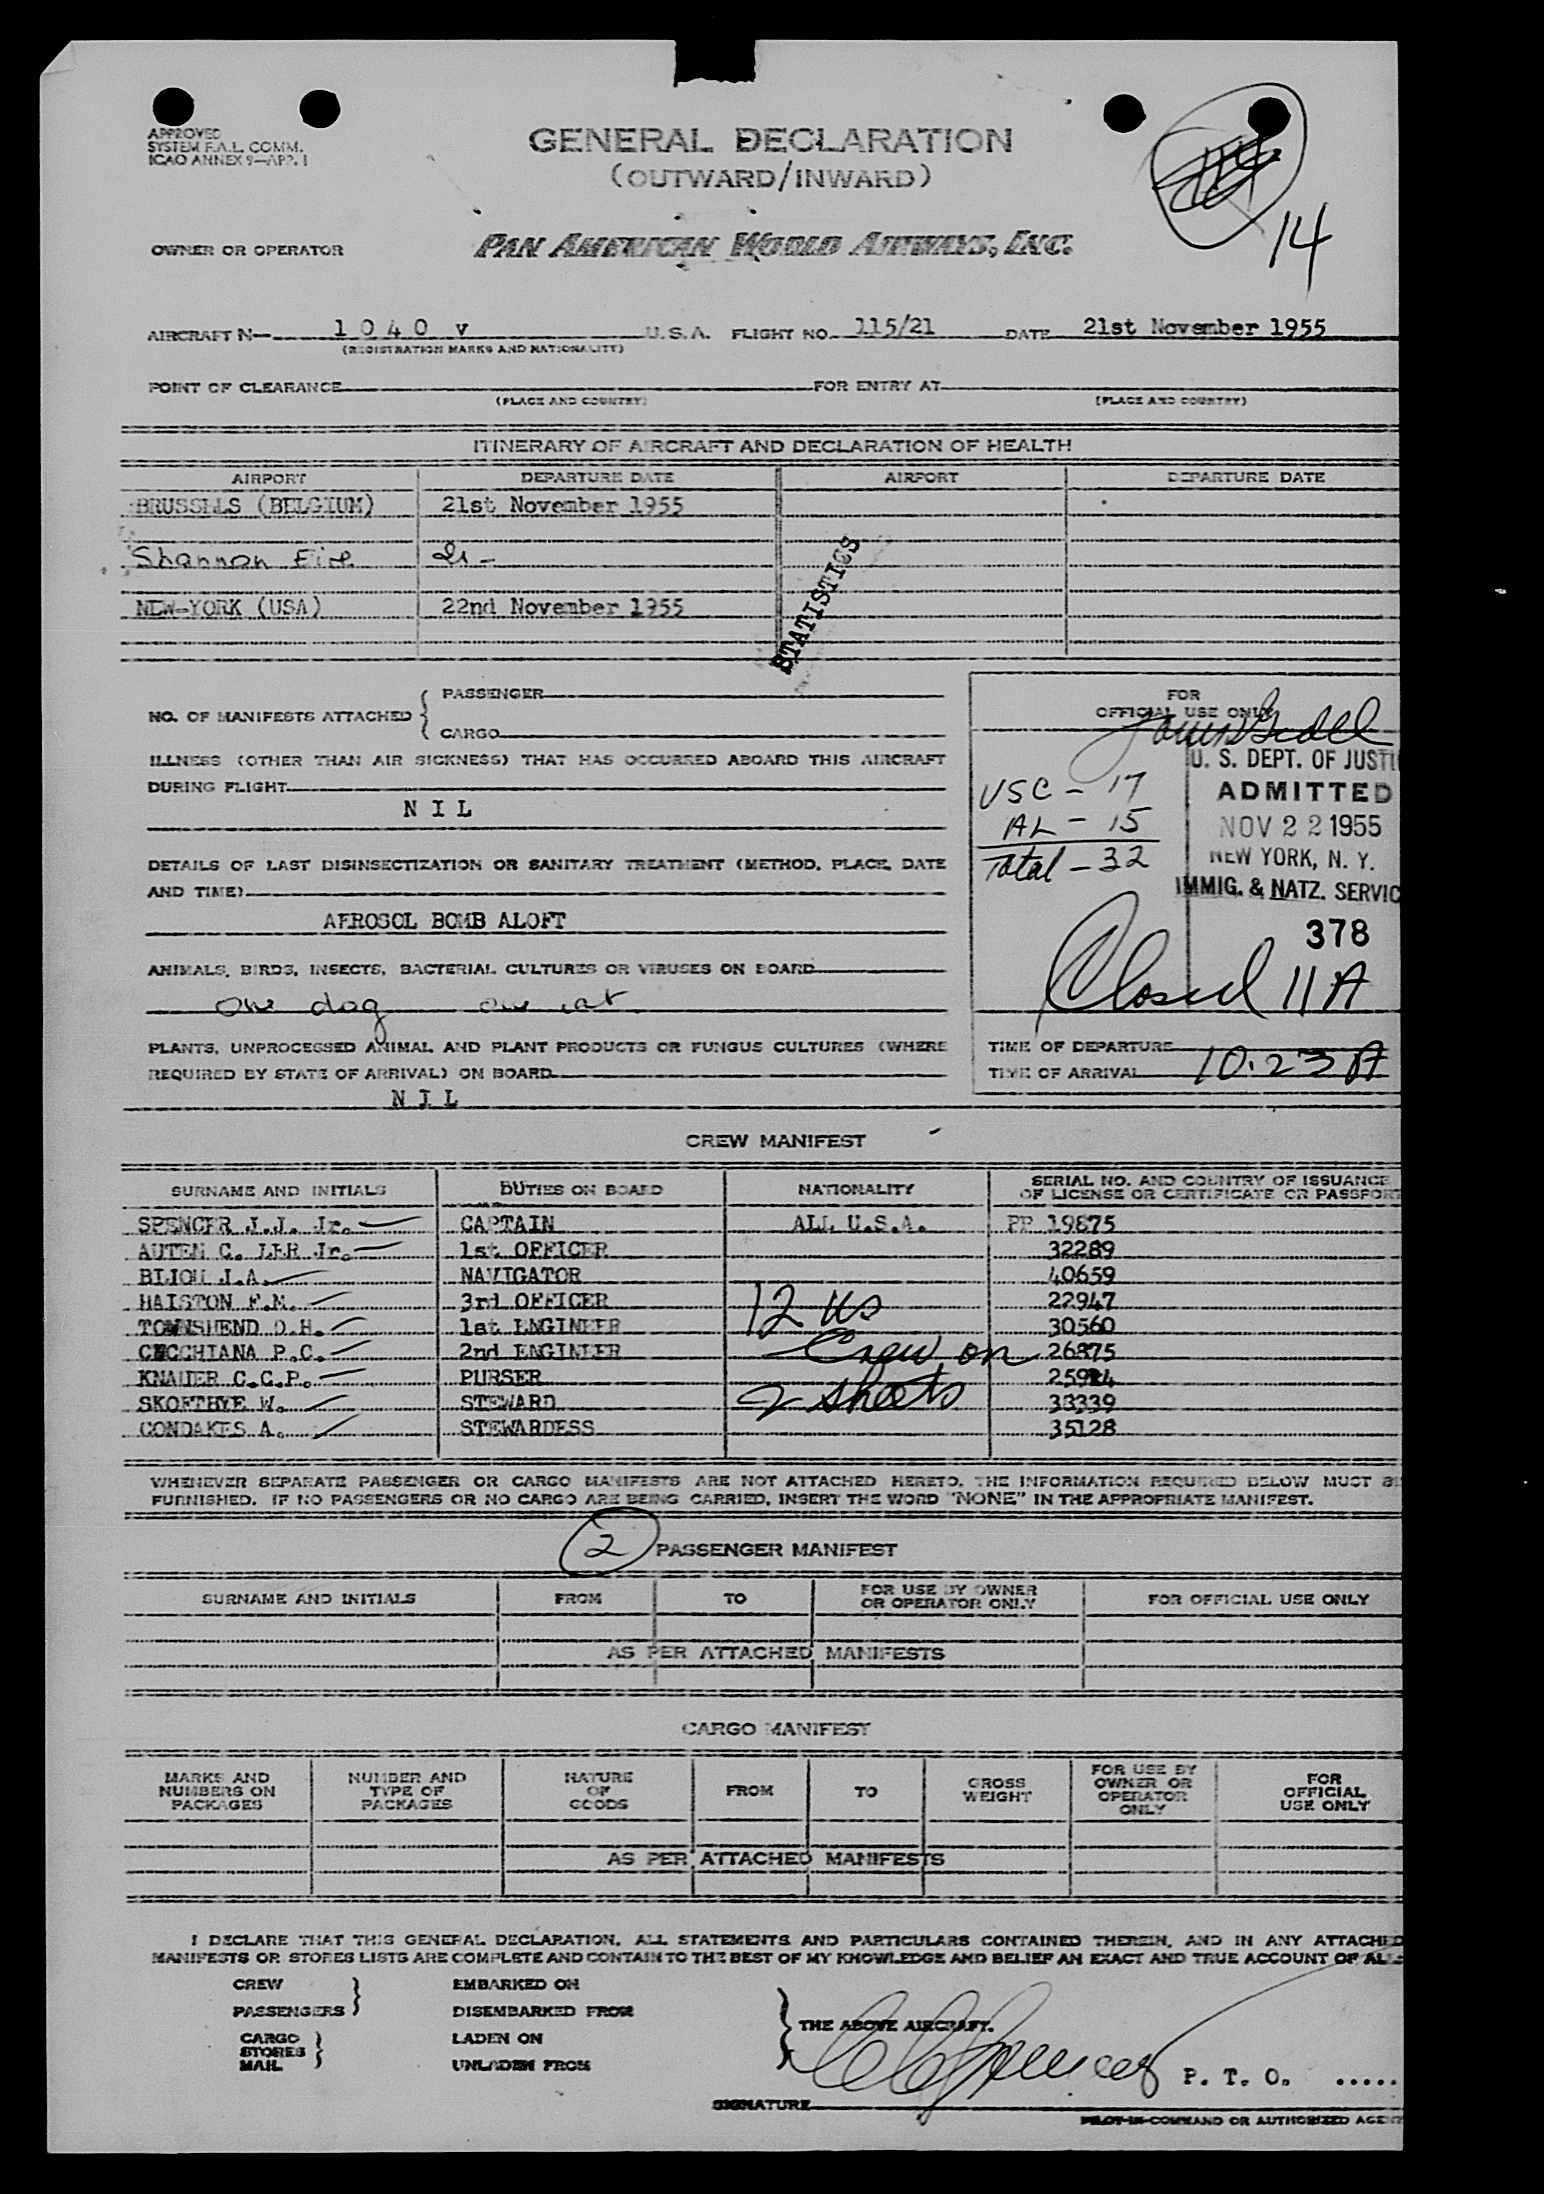 APPROVED
SYSTEM F.A.L. COMM.
ICAO ANNEX 9—APP. 1
GENERAL DECLARATION
(OUTWARD/INWARD)
14
OWNER OR OPERATOR PAN AMERICAN WORLD AIRWAYS, INC.
AIRCRAFT N— 1 0 4 0 v U.S.A. FLIGHT NO. 115/21 DATE 21st November 1955
(REGISTRATION MARKS AND NATIONALITY)
POINT OF CLEARANCE FOR ENTRY AT
(PLACE AND COUNTRY) (PLACE AND COUNTRY)
ITINERARY OF AIRCRAFT AND DECLARATION OF HEALTH
AIRPORT DEPARTURE DATE AIRPORT DEPARTURE DATE
BRUSSELS (BELGIUM) 21st November 1955
Shannon Eire
NEW-YORK (USA) 22nd November 1955
STATISTICS
NO. OF MANIFESTS ATTACHED { PASSENGER
CARGO
ILLNESS (OTHER THAN AIR SICKNESS) THAT HAS OCCURRED ABOARD THIS AIRCRAFT
DURING FLIGHT
N I L
DETAILS OF LAST DISINSECTIZATION OR SANITARY TREATMENT (METHOD, PLACE, DATE
AND TIME)
AEROSOL BOMB ALOFT
ANIMALS, BIRDS, INSECTS, BACTERIAL CULTURES OR VIRUSES ON BOARD
one dog one cat
PLANTS, UNPROCESSED ANIMAL AND PLANT PRODUCTS OR FUNGUS CULTURES (WHERE
REQUIRED BY STATE OF ARRIVAL) ON BOARD
N I L
FOR
OFFICIAL USE ONLY
U. S. DEPT. OF JUSTI
ADMITTED
NOV 22 1955
NEW YORK, N. Y.
IMMIG. & NATZ. SERVIC
378
USC - 17
AL - 15
Total - 32
Closed 11 A
TIME OF DEPARTURE
TIME OF ARRIVAL 10.23 A
CREW MANIFEST
SURNAME AND INITIALS DUTIES ON BOARD NATIONALITY SERIAL NO. AND COUNTRY OF ISSUANCE
OF LICENSE OR CERTIFICATE OR PASSPORT
SPENCER J.J. Jr. CAPTAIN ALL U.S.A. PP 19875
AUTEN C. LER Jr. 1st OFFICER 32289
BIJOU J.A. NAVIGATOR 40659
HAISTON F.M. 3rd OFFICER 22947
TOWNSHEND D.H. 1st ENGINEER 30560
CECCHIANA P.C. 2nd ENGINEER 26875
KNAUER C.C.P. PURSER
SKOFTBYE W. STEWARD 33339
CONDAKES A. STEWARDESS 35128
12 US
Crew on
2 sheets
WHENEVER SEPARATE PASSENGER OR CARGO MANIFESTS ARE NOT ATTACHED HERETO, THE INFORMATION REQUIRED BELOW MUST BE
FURNISHED. IF NO PASSENGERS OR NO CARGO ARE BEING CARRIED, INSERT THE WORD "NONE" IN THE APPROPRIATE MANIFEST.
2 PASSENGER MANIFEST
SURNAME AND INITIALS FROM TO FOR USE BY OWNER
OR OPERATOR ONLY FOR OFFICIAL USE ONLY
AS PER ATTACHED MANIFESTS
CARGO MANIFEST
MARKS AND
NUMBERS ON
PACKAGES
NUMBER AND
TYPE OF
PACKAGES
NATURE
OF
GOODS
FROM
TO
GROSS
WEIGHT
FOR USE BY
OWNER OR
OPERATOR
ONLY
FOR
OFFICIAL
USE ONLY
AS PER ATTACHED MANIFESTS
I DECLARE THAT THIS GENERAL DECLARATION, ALL STATEMENTS AND PARTICULARS CONTAINED THEREIN, AND IN ANY ATTACHED
MANIFESTS OR STORES LISTS ARE COMPLETE AND CONTAIN TO THE BEST OF MY KNOWLEDGE AND BELIEF AN EXACT AND TRUE ACCOUNT OF ALL
CREW EMBARKED ON
PASSENGERS DISEMBARKED FROM
THE ABOVE AIRCRAFT.
CARGO LADEN ON
STORES
MAIL UNLADEN FROM
P. T. O. .....
SIGNATURE
PILOT-IN-COMMAND OR AUTHORIZED AGENT